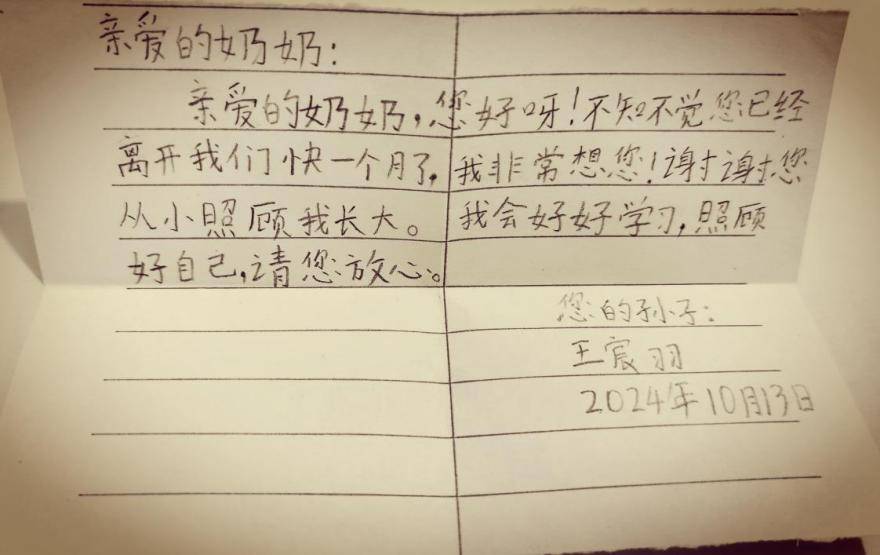 亲爱的奶奶：
亲爱的奶奶，您好呀！不知不觉您已经
离开我们快一个月了，我非常想您！谢谢您
从小照顾我长大。我会好好学习，照顾
好自己，请您放心。
您的孙子：
王宸羽
2024年10月13日